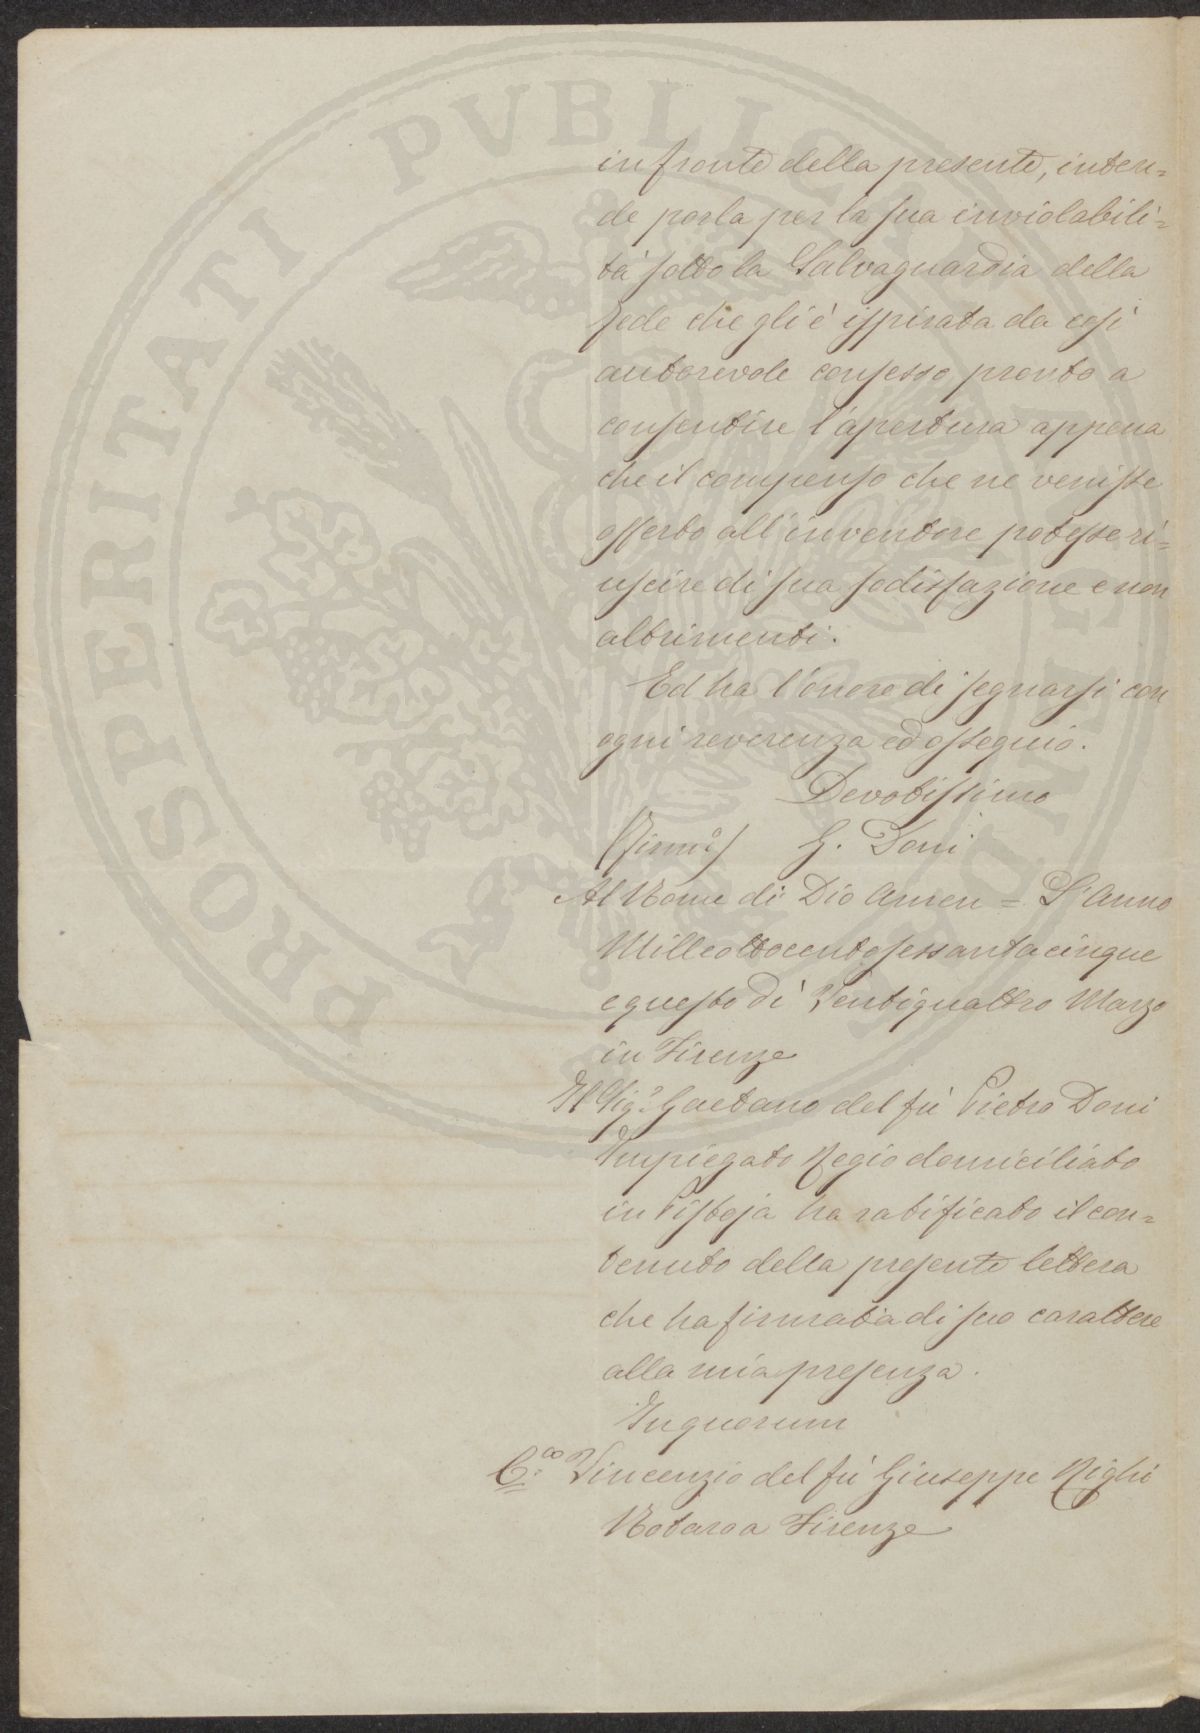 in fronte della presente, inten=
de porla per la sua inviolabili=
tà sotto la Salvaguardia della
fede che gli è ispirata da così
autorevole consesso pronto a
consentire l'apertura appena
che il compenso che ne venisse
offerto all'inventore potesse ri=
uscire di sua sodisfazione e non
altrimenti.
Ed ha l'onore di segnarsi con
ogni reverenza ed ossequio.
Devotissimo
(Firmo) G. Doni
Al Nome di Dio Amen = L'Anno
Milleottocentosessantacinque
e questo dì Ventiquattro Marzo
in Firenze
Il Sigr. Gaetano del fù Pietro Doni
Impiegato Regio domiciliato
in Pistoja ha ratificato il con=
tenuto della presente lettera
che ha firmata di suo carattere
alla mia presenza.
In quorum
Vincenzio del fù Giuseppe Righi
Notaro a Firenze
PROSPERITATI PVBLICAE